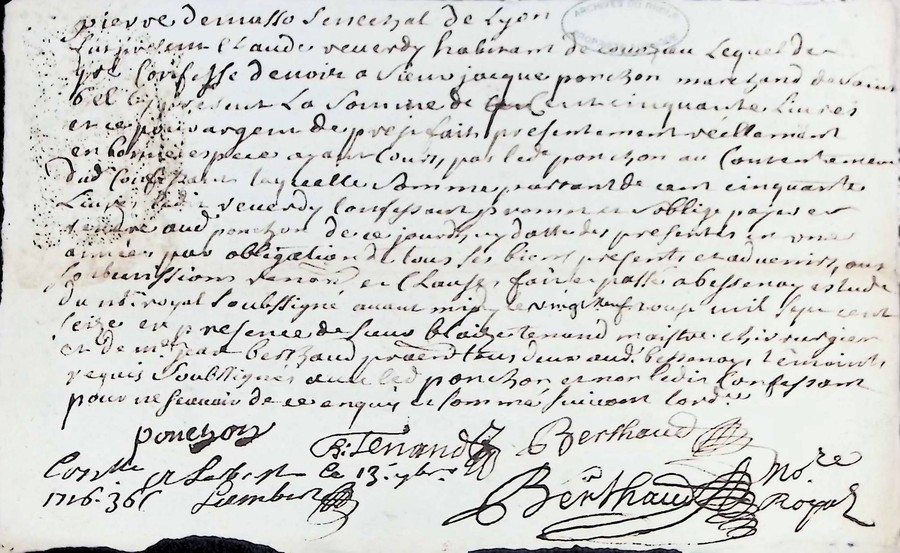 pierre demasso senechal de Lyon
fut present Claude reverdy habitant de couzou Lequel de
gré Confesse devoir a sieur jacque ponchon marchand de saint
bel present La somme de Cent cinquante Livres
et ce pour argent de prest fait presentement réellement
en bonne espece ayant Cours, par led ponchon au Contentement
dud Confessant laquelle somme partant de cent cinquante
Livres led reverdy Confessant promet et oblige payer et
rendre aud ponchon de ce jourdhuy datte des presentes en une
année par obligation de tous ses biens presents et advenirs, avec
soubmissions renon et Clauses, fait et passé a bessenay estude
du no.re royal soubsigné avant midy le vingt neuf mil sept cent
seize en presence de sieur blaize tenand maistre chirurgien
et de m.e jean berthaud praticien tous deux aud. bessenay temoins
requis soubsignés avec led ponchon et non ledit Confessant
pour ne sçavoir de ce enquis et sommé suivant lord.e
ponchon B. Tenand Berthaud
Con.lle a Larbresle le 13 9bre
1716. Lambert Berthaud No.re
Royal